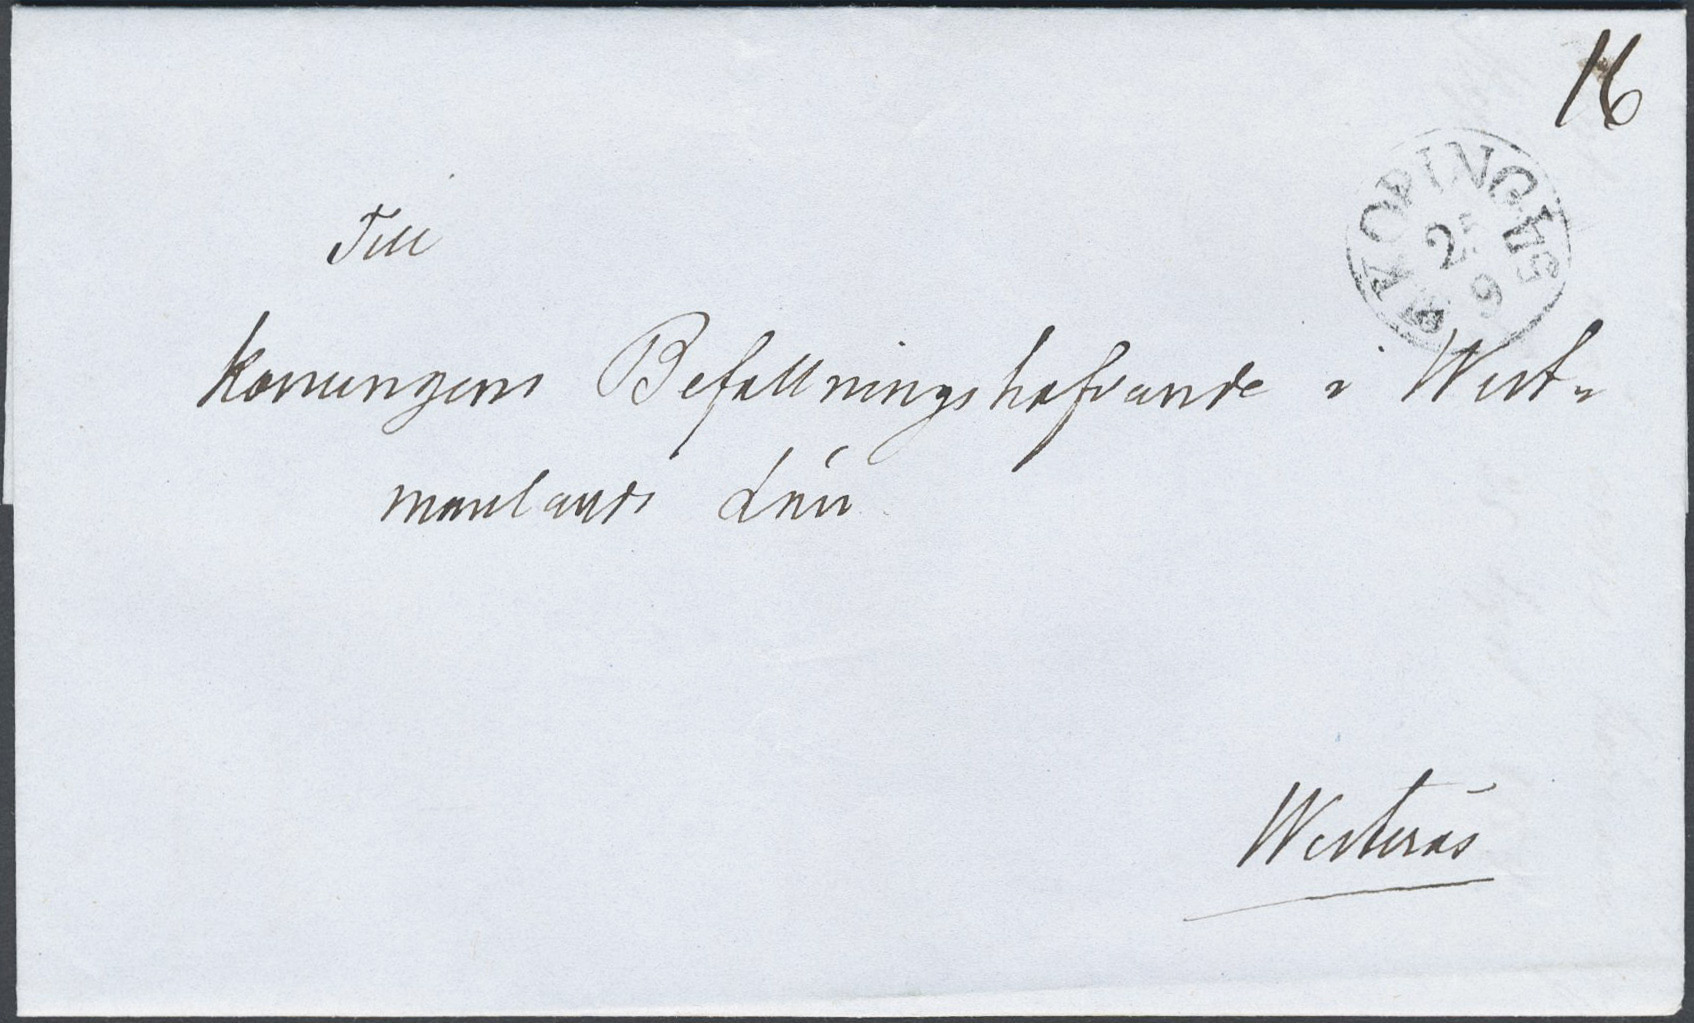 16
25
9
Till
Konungens Befallningshafvande i West-
manlands Län
Westerås